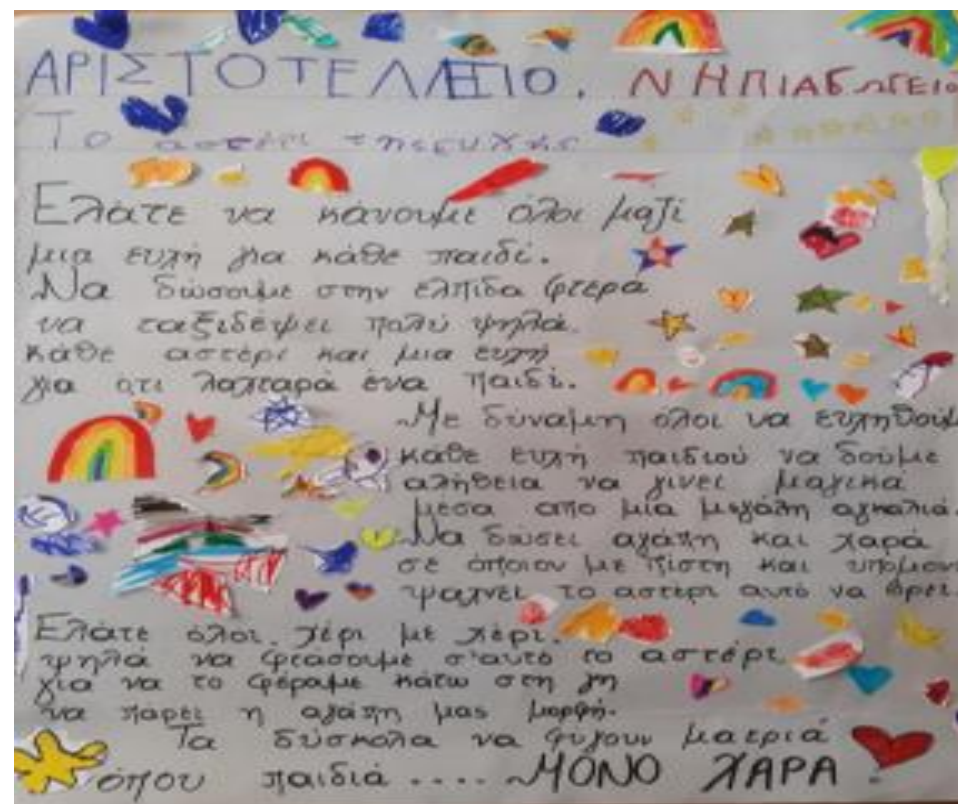 ΑΡΙΣΤΟΤΕΛΛΕΙΟ. ΝΗΠΙΑΓΩΓΕΙΟ
Το αστέρι της ευχής
Ελάτε να κάνουμε όλοι μαζί
μια ευχή για κάθε παιδί.
Να δώσουμε στην ελπίδα φτερά
να ταξιδέψει πολύ ψηλά
κάθε αστέρι και μια ευχή
για ότι λαχταρά ένα παιδί.
Με δύναμη όλοι να ευχηθούμ
κάθε ευχή παιδιού να δούμε
αλήθεια να γινει μαγικά
μεσα απο μία μεγάλη αγκαλιά.
Να δώσει αγάπη και χαρά
σε όποιον με πίστη και υπομον
ψαχνει το αστερι αυτό να βρει.
Ελάτε όλοι χέρι με χέρι.
ψηλά να φτασουμε σ'αυτό το αστέρι
για να το φέραμε κάτω στη γη
να παρει η αγάπη μας μορφή.
Τα δύσκολα να φυγουν μακριά
όπου παιδιά .... ΜΟΝΟ ΧΑΡΑ.